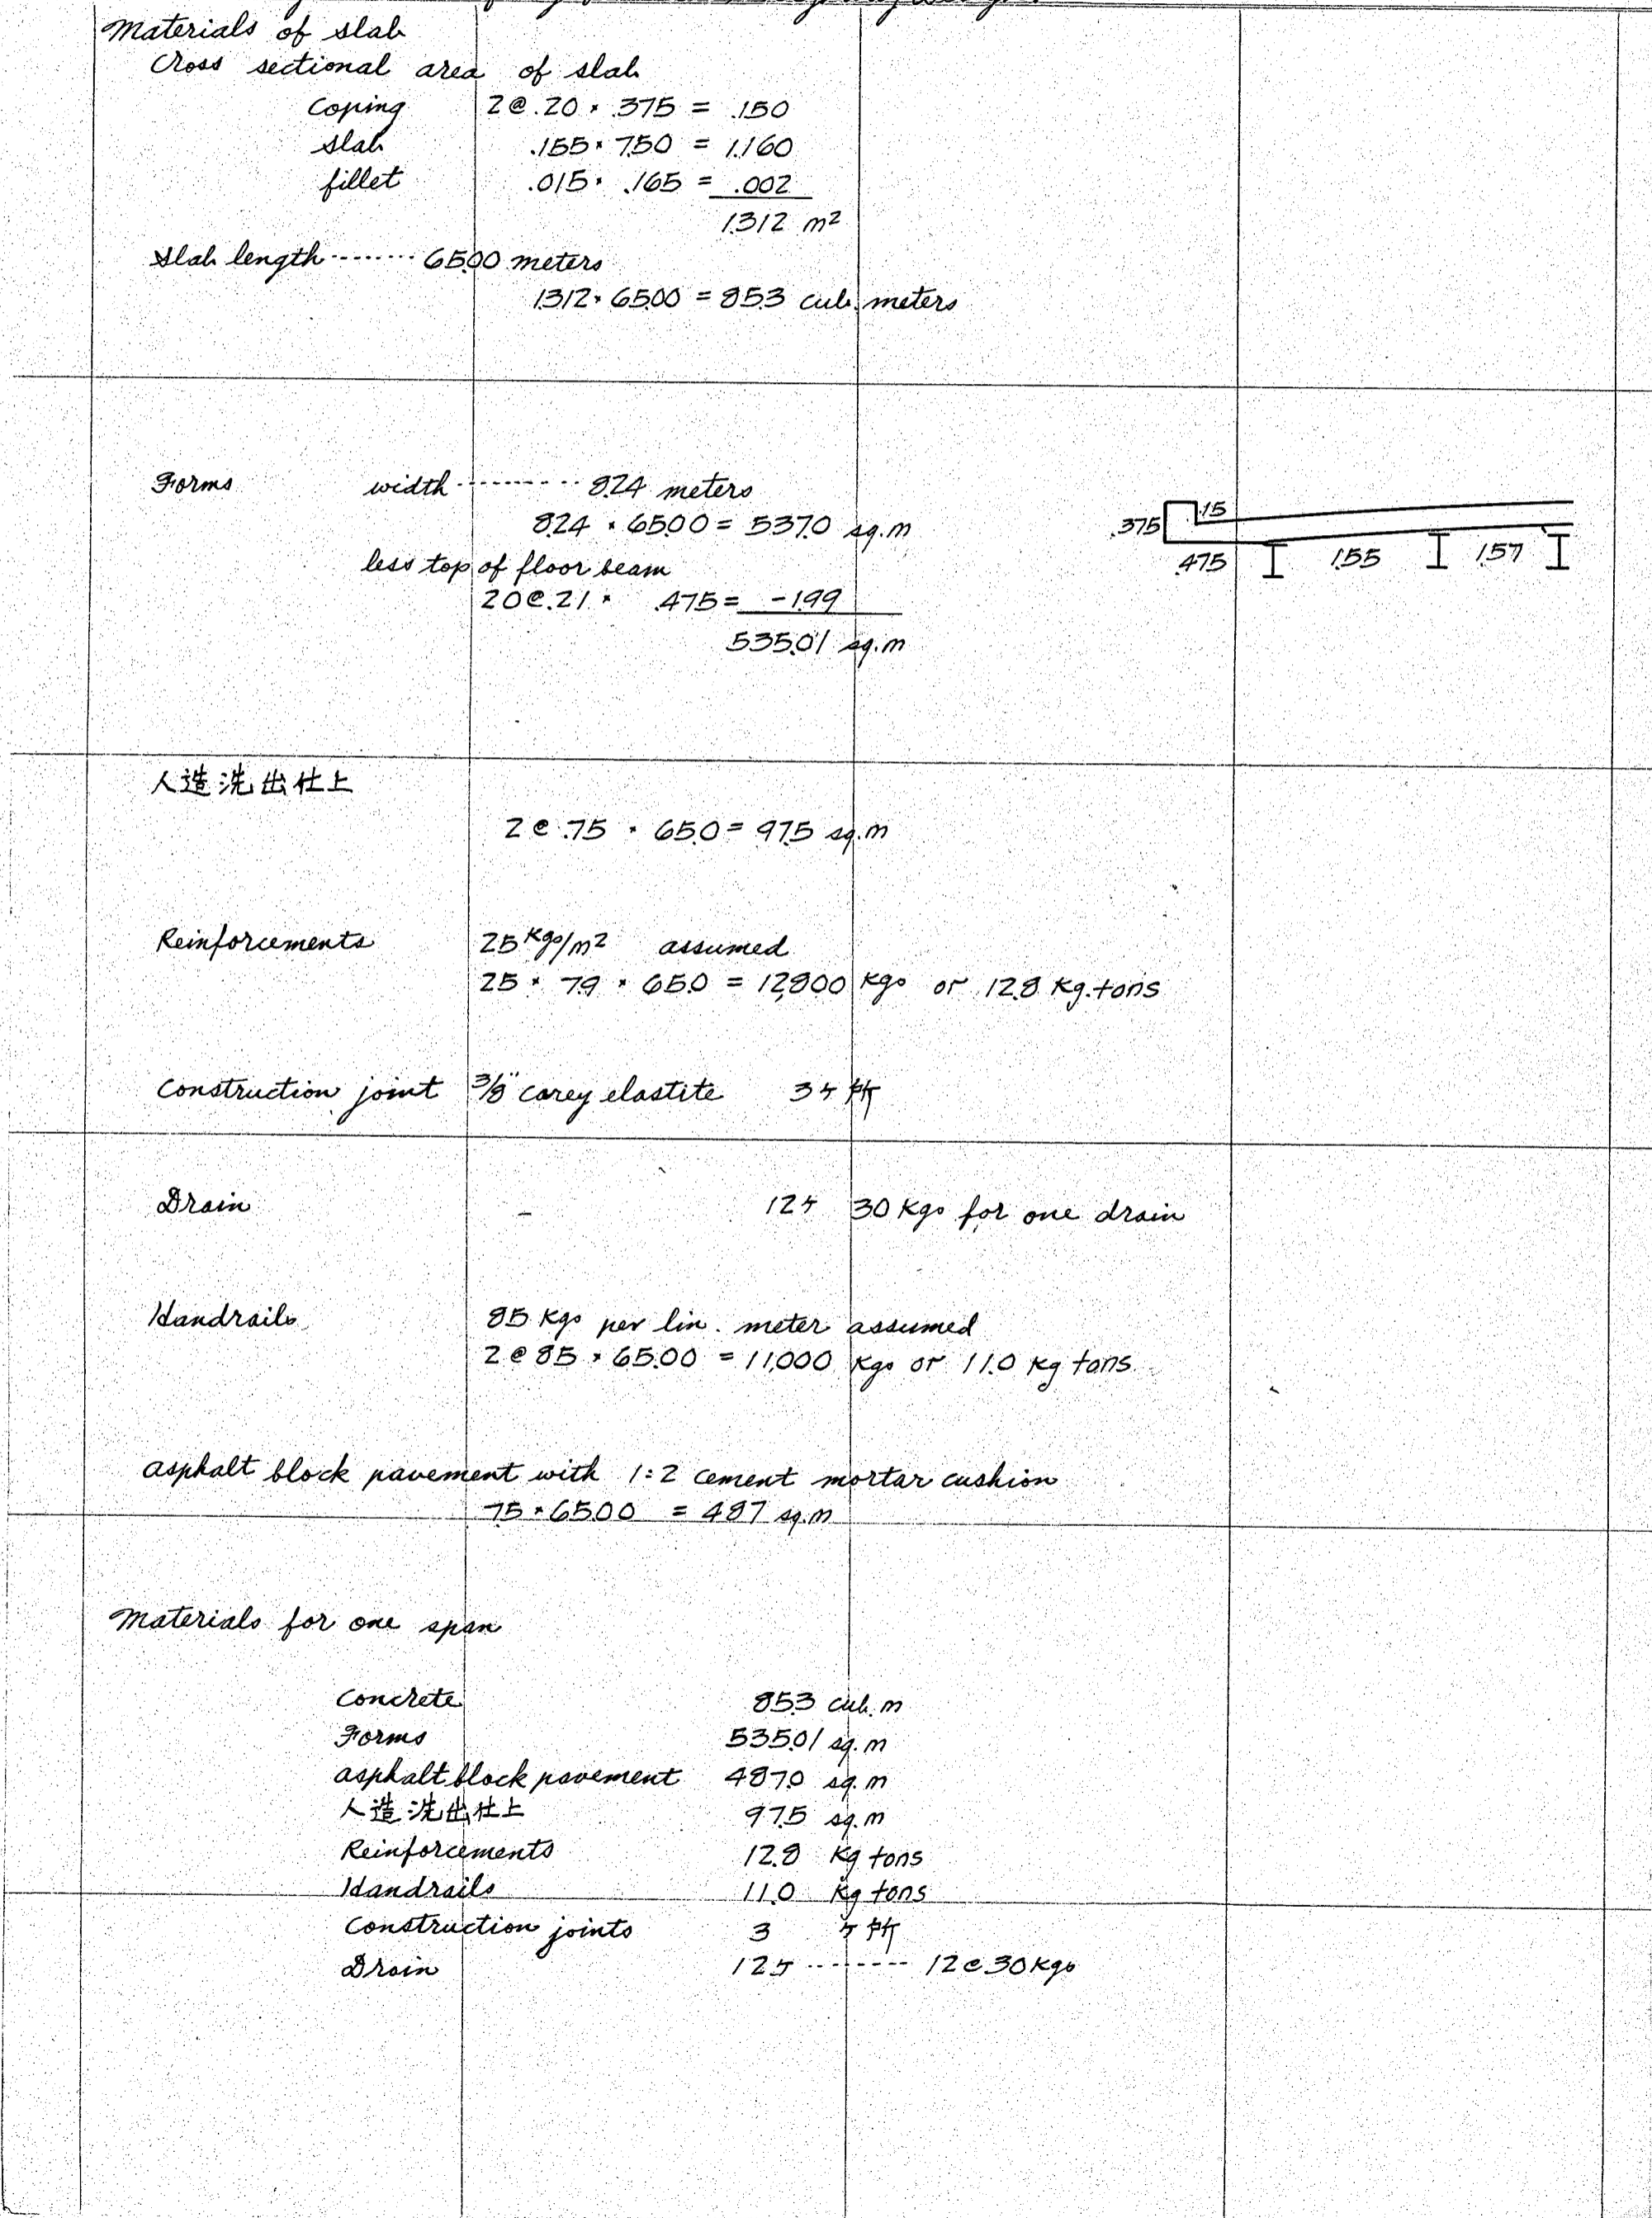 Materials of slab
Cross sectional area of slab
Coping 2@.20 × .375 = .150
slab .155 × 7.50 = 1.160
fillet .015 × .165 = .002
1.312 m²
Slab length -------- 65.00 meters
1.312 × 65.00 = 85.3 cub. meters
Forms width --------- 8.24 meters
8.24 × 65.00 = 537.0 sq.m
less top of floor beam
20@.21 × .475 = -1.99
535.01 sq.m
.375 .15
.475 1.55 1.57
人造洗出仕上
2@.75 × 65.0 = 97.5 sq.m
Reinforcements 25 Kgs/m² assumed
25 × 7.9 × 65.0 = 12,800 Kgs or 12.8 Kg.tons
Construction joint 3/8" carey elastite 3ヶ所
Drain 12ヶ 30 Kgs for one drain
Handrails 85 Kgs per lin. meter assumed
2@85 × 65.00 = 11,000 Kgs or 11.0 Kg tons.
asphalt block pavement with 1:2 cement mortar cushion
7.5 × 65.00 = 487 sq.m
Materials for one span
Concrete 85.3 cub. m
Forms 535.01 sq. m
asphalt block pavement 487.0 sq. m
人造洗出仕上 97.5 sq. m
Reinforcements 12.8 Kg tons
Handrails 11.0 Kg tons
Construction joints 3 ヶ所
Drain 12ヶ -------- 12@30Kgs